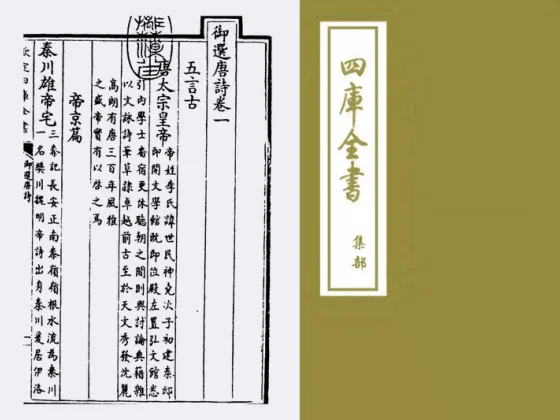 御選唐詩卷一
五言古
唐太宗皇帝
帝姓李氏諱世民神堯次子初建秦邸
即開文學館既即位殿左置弘文館悉
引内學士番宿更休聽朝之間則與討論典籍雜
以文詠詩筆草隸卓越前古至於天文秀發沈麗
高朗有唐三百年風雅
之盛帝實有以啓之焉
帝京篇
秦川雄帝宅
三秦記長安正南秦嶺嶺根水流為秦川
一名樊川提明帝詩出身秦川爰居伊洛
欽定四庫全書
御選唐詩
四庫全書
集部